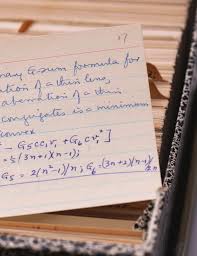 17
G-sum formula for
of a thin lens,
aberration of a thin
conjugates is a minimum
convex
- G5cc1v1 + G6cv1²]
= ⅛(3n+1)(n-1);
G5 = 2(n²-1)/n; G6 = (3n+2)(n-1)/2n